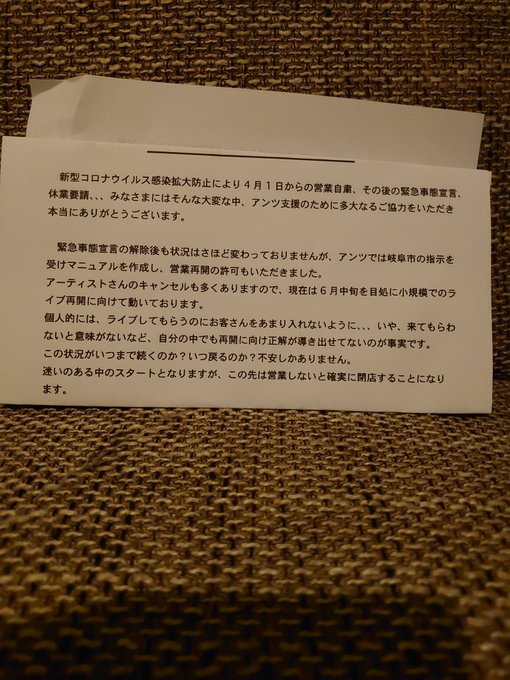 新型コロナウイルス感染拡大防止により４月１日からの営業自粛、その後の緊急事態宣言、
休業要請、、、みなさまにはそんな大変な中、アンツ支援のために多大なるご協力をいただき
本当にありがとうございます。
緊急事態宣言の解除後も状況はさほど変わっておりませんが、アンツでは岐阜市の指示を
受けマニュアルを作成し、営業再開の許可もいただきました。
アーティストさんのキャンセルも多くありますので、現在は６月中旬を目処に小規模でのラ
イブ再開に向けて動いております。
個人的には、ライブしてもらうのにお客さんをあまり入れないように、、、いや、来てもらわ
ないと意味がないなど、自分の中でも再開に向け正解が導き出せてないのが事実です。
この状況がいつまで続くのか？いつ戻るのか？不安しかありません。
迷いのある中のスタートとなりますが、この先は営業しないと確実に閉店することになり
ます。